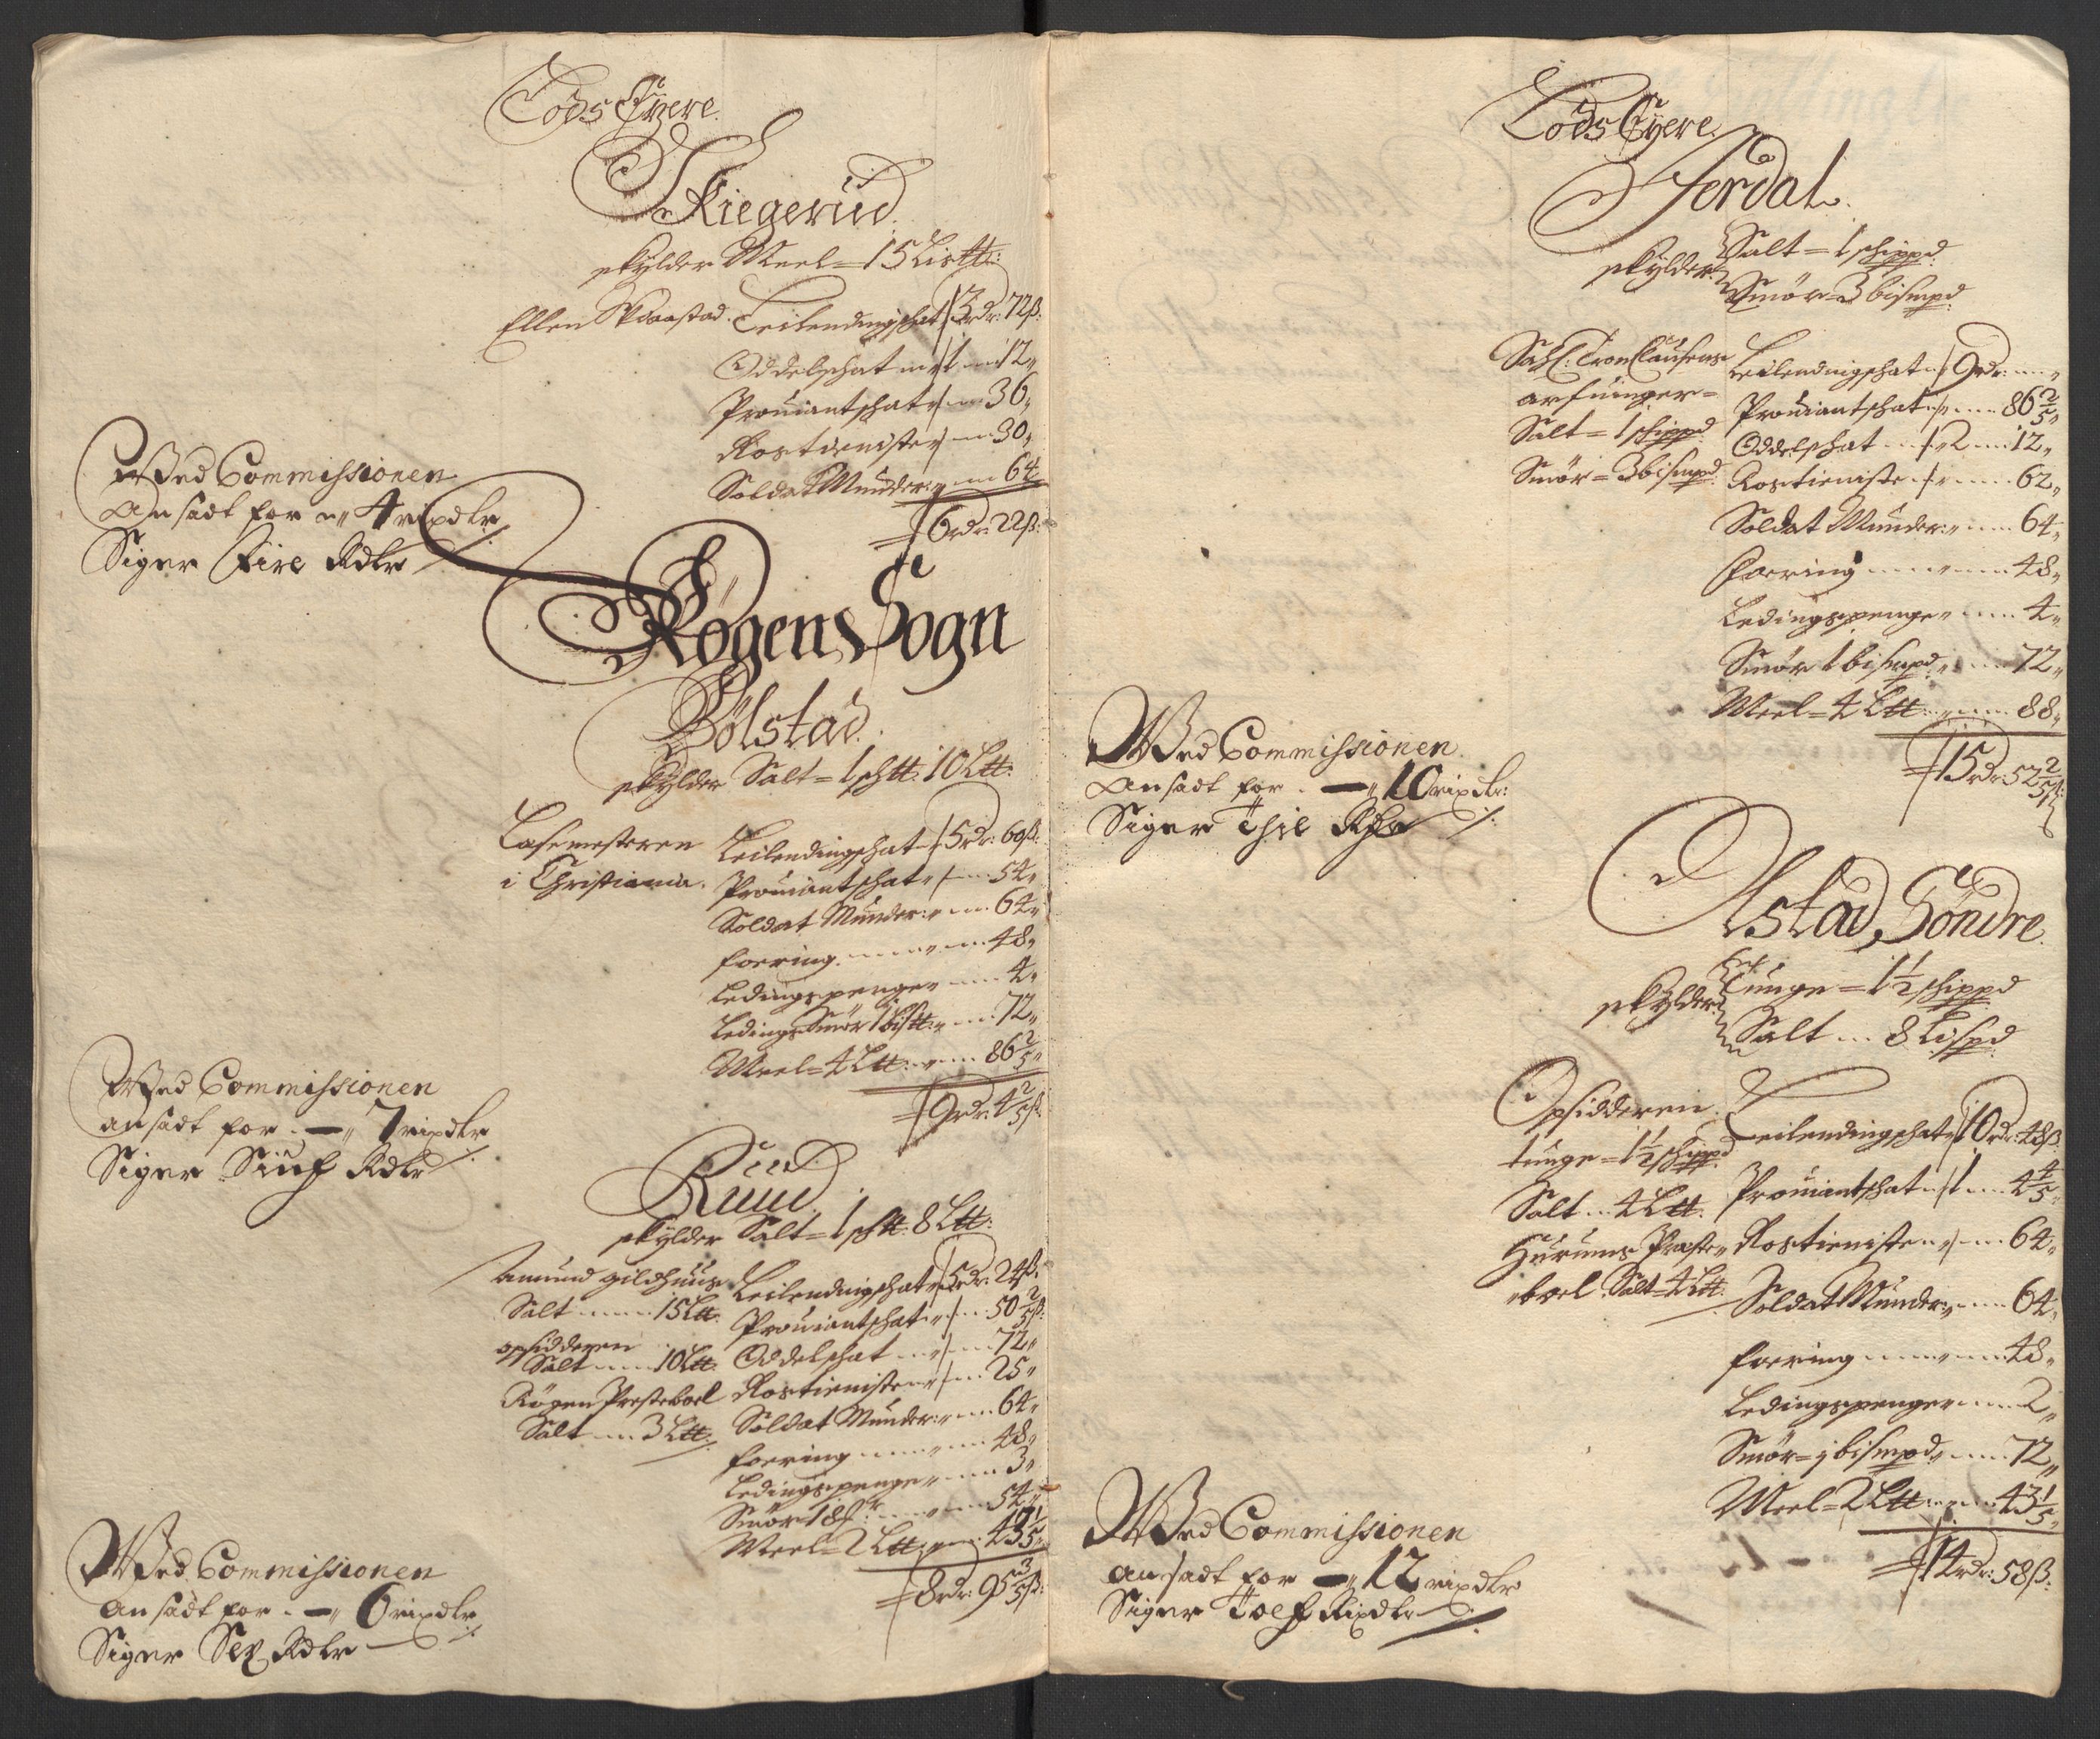 Lods Eyere.
Skiegerud
skylder Meel = 15 Lis℔:
Ellen Skaastad. Leilendingschat 3 rdr: 72 ß:
Oddelschat 1 12„
Proviantschat 36„
Rostieniste 30„
Soldat Munder: 64
6 rdr: 22 ß:
Wed Commissionen
Ansadt for 4 rixdlr
Siger Fire Rdlr
Røgens Sogn
Bølstad.
skylder Salt = 1 sh℔: 10 L℔:
Lasemesteren
i Christiania.
Leilendingschat 5 rdr: 60 ß:
Proviantschat 54„
Soldat Munder: 64„
foering 48„
Ledingspenge 4„
Ledings Smør 1 bis℔: 72„
Meel = 4 L℔: 86 2/5„
9 rdr: 4 2/5 ß:
Wed Commissionen
ansadt for 7 rixdlr
Siger Siuf Rdlr
Ruud
skylder Salt = 1 sh℔: 8 L℔:
Amund Gildhuus
Salt 15 L℔:
opsidderen
Salt 10 L℔:
Røgen Presteboel
Salt 3 L℔:
Leilendingschat 5 rdr: 24 ß:
Proviantschat 50 2/5 ß:
Oddelschat 72„
Rostieniste 25„
Soldat Munder: 64„
foering 48„
Ledingspenge 3„
Smør 18 54„
Meel = 2 L℔: 43 1/5„
8 rdr: 95 3/5 ß:
Wed Commissionen
ansadt for 6 rixdlr
Siger Sex Rdlr
Lods Eyere.
Jordal.
skylder Salt = 1 schippd:
Smør = 3 bismpd:
Sahl: Tron Clausens
arfuinger =
Salt = 1 schippd:
Smør = 3 bismpd:
Leilendingschat 9 rdr:
Proviantschat 86 2/5„
Oddelschat 2 12„
Rostieniste 62„
Soldat Munder: 64„
foering 48„
Ledingspenge 4„
Smør 1 bismpd: 72„
Meel = 4 L℔: 88„
15 rdr: 52 2/5 ß:
Wed Commissionen
Ansadt for 10 rixdlr:
Siger Thje Rdlr
Olstad, Søndre.
skylder Tunge = 1½ schippd
Salt 8 Lispd
Opsidderen
tunge = 1½ schippd
Salt 4 L℔:
Hurums Præste„
boel Salt = 4 L℔:
Leilendingschat 10 rdr: 48 ß
Proviantschat 1 4 4/5„
Rostieniste 64„
Soldat Munder: 64„
foering 48„
Ledingspenge 2„
Smør = 1 bismpd: 72„
Meel = 2 L℔: 43 1/5„
14 rdr: 58 ß:
Wed Commissionen
ansadt for 12 rixdlr
Siger Tolf Rixdlr